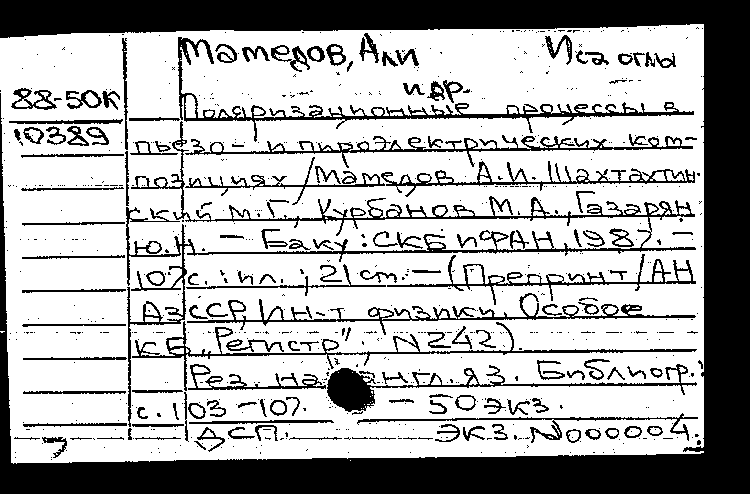 Мамедов, Али Иса оглы
и др.
88-50К
10389
Поляризационные процессы в
пьезо- и пироэлектрических ком-
позициях / Мамедов А.И., Шахтахтин-
ский М.Г., Курбанов М.А., Газарян
Ю.Н. — Баку: СКБ ИФАН, 1987. —
107с.: ил.; 21 см. — (Препринт / АН
АзССР, Ин-т физики, Особое
КБ „Регистр"; N242).
Рез. на англ. яз. Библиогр.:
с. 103-107. — 50 экз.
ДСП. Экз. N000004.